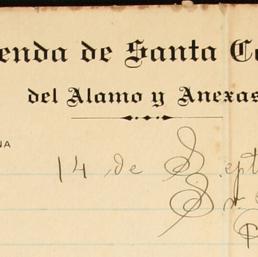 enda de Santa C
del Alamo y Anexas
NA
14 de Sept
Sr.